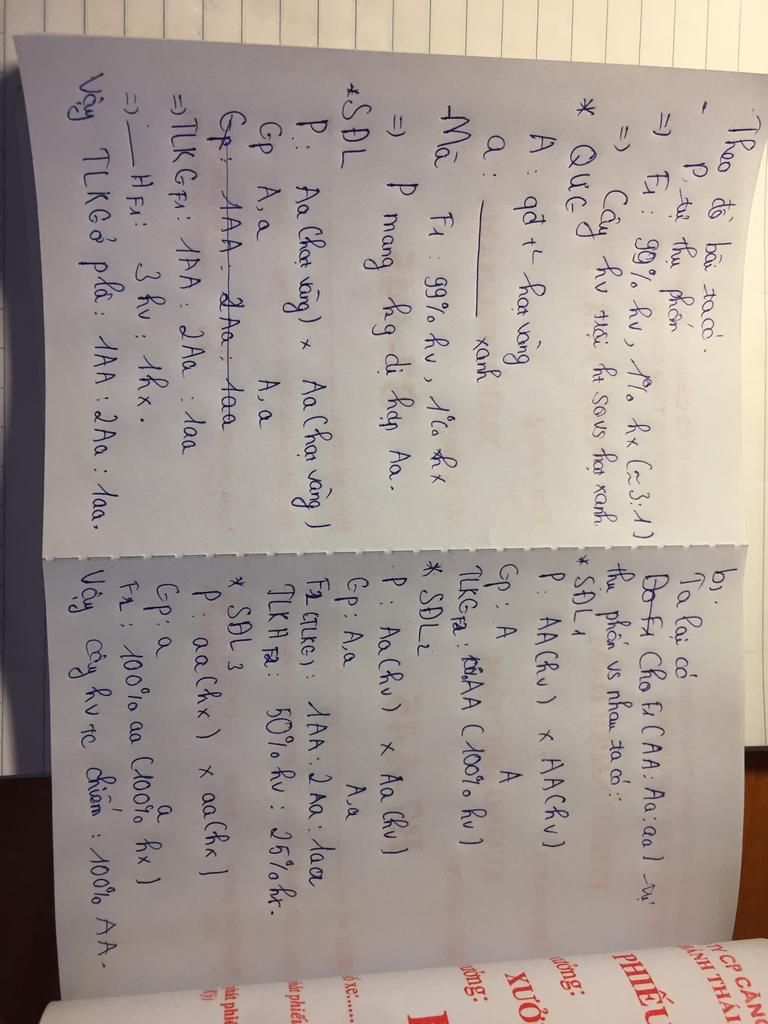 Theo đề bài ta có.
- P tự thụ phấn
=> F1 : 99% hv, 1% hx (≈ 3:1)
=> Cây hv trội ht so vs hạt xanh
* QƯG
A : qđ t² hạt vàng
a : ——— xanh
-Mà F1 : 99% hv, 1% hx
=> P mang kg dị hợp Aa.
*SĐL
P : Aa(hạt vàng) x Aa(hạt vàng)
Gp A,a A,a
Gp : 1AA : 2Aa : 1aa
=> TLKGF1 : 1AA : 2Aa : 1aa
=> —— HF1 : 3hv : 1hx.
Vậy TLKG ở phâ : 1AA : 2Aa : 1aa.
b).
Ta lại có
Do F1 Cho F1 (AA : Aa : aa) tự
thụ phấn vs nhau ta có :
* SĐL1
P : AA(hv) x AA(hv)
Gp : A A
TLKGF2 : 100% AA (100% hv)
* SĐL2
P : Aa(hv) x Aa(hv)
Gp : A,a A,a
F2 (TLKG) : 1AA : 2Aa : 1aa
TLKHF2 : 50% hv : 25% hx.
* SĐL3
P : aa(hx) x aa(hx)
Gp : a a
F2 : 100% aa (100% hx)
Vậy cây hv tc chiếm : 100% AA.
TY CP CẢNG
THÀNH THÁI
PHIẾU
XƯỞ
ương:
ưởng:
ố xe: